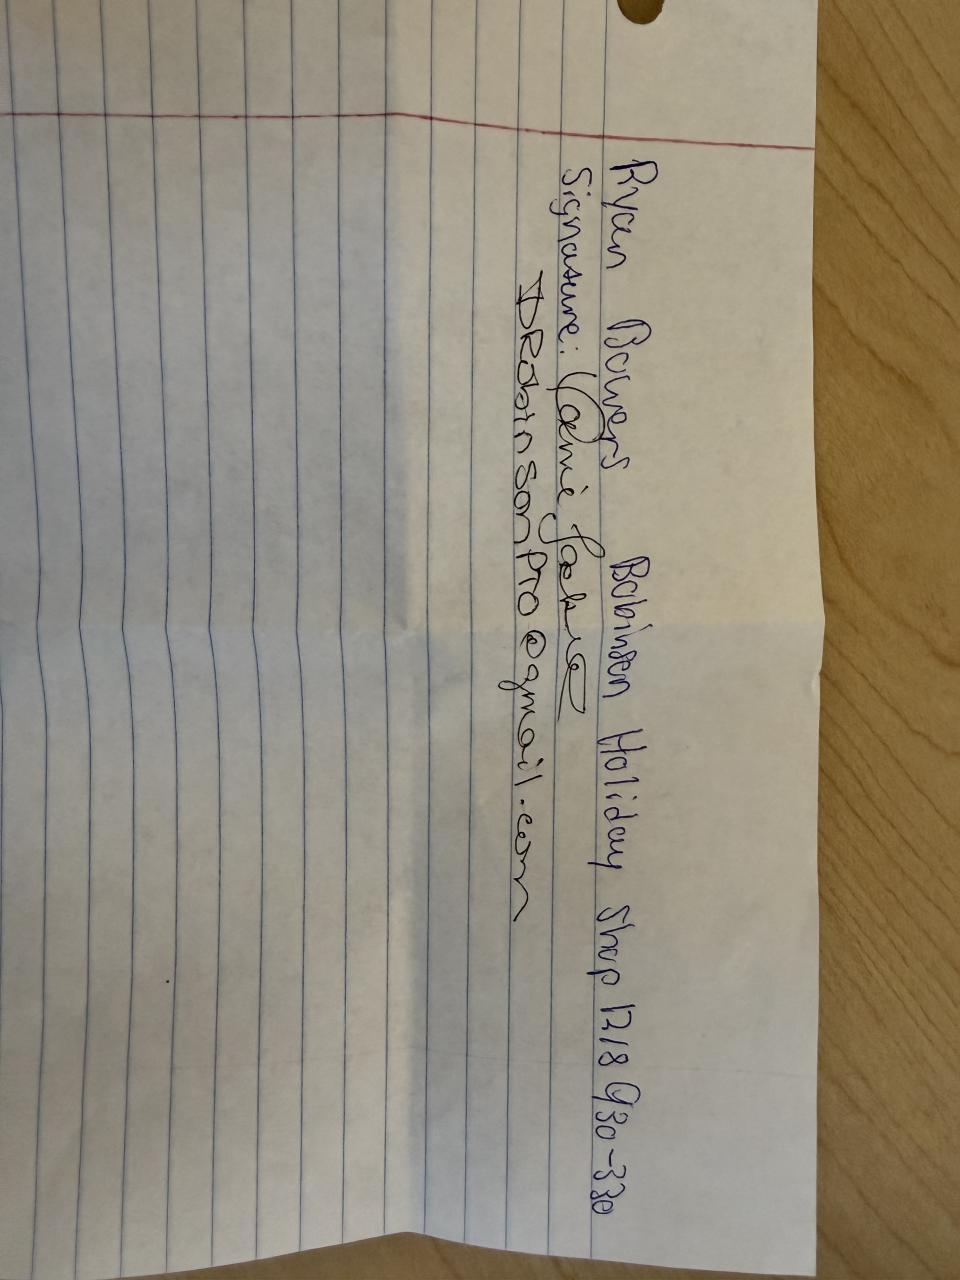 Ryan Bowers Bobinson Holiday Shop 12/18 930-330
Signature:
DRobinsonPTO@gmail.com